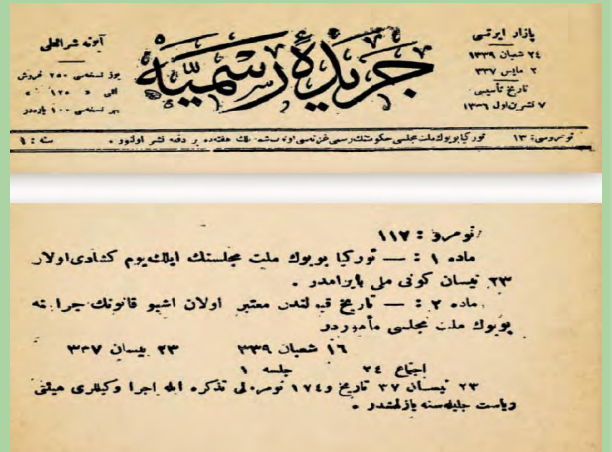 پازار ایرتسی
٢٤ شعبان ١٣٣٩
٢ مایس ٣٣٧
تاریخ تأسیسی
٧ تشرین اول ١٣٣٦
جریدۀ رسمیه
آبونه شرائطی
یوز نسخه‌سی ٢٥٠ غروش
اللی » ١٢٠ »
بهر نسخه‌سی ١٠٠ پاره‌در
نومروسی: ١٣ تورکیا بویوك ملت مجلسی حکومتنك رسمی غزته‌سی اولوب هفته‌ده بر دفعه نشر اولنور . سنه : ١
نومرو : ١١٧
ماده ١ : — تورکیا بویوك ملت مجلسنك ایلك یوم کشادی اولان
٢٣ نیسان کونی ملی بایرامدر .
ماده ٢ : — تاریخ قبولندن معتبر اولان اشبو قانونك اجراسنه
بویوك ملت مجلسی مأموردر
١٦ شعبان ٣٣٩ ٢٣ نیسان ٣٣٧
اجتماع ٢٤ جلسه ١
٢٣ نیسان ٣٧ تاریخ و ١٧٤ نومرولی تذکره ایله اجرا وکیللری هیئتی
ریاست جلیله‌سنه یازلمشدر .